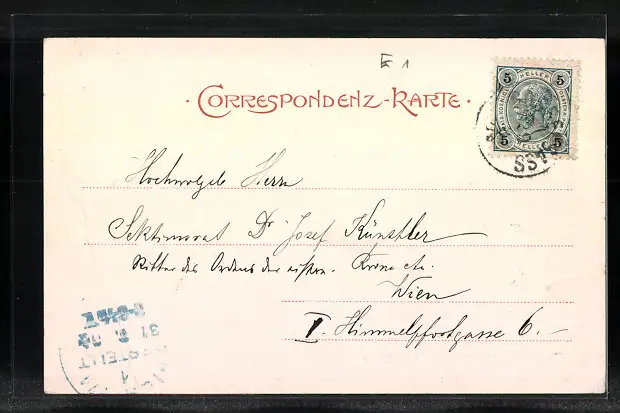 E 1
· CORRESPONDENZ-KARTE ·
5 HELLER 5
5 HELLER 5
Hochwolgeb Herrn
Sektionsrat Dr Josef Künstler
Ritter des Ordens der eisern. Krone etc.
Wien
I. Himmelpfortgasse 6. –